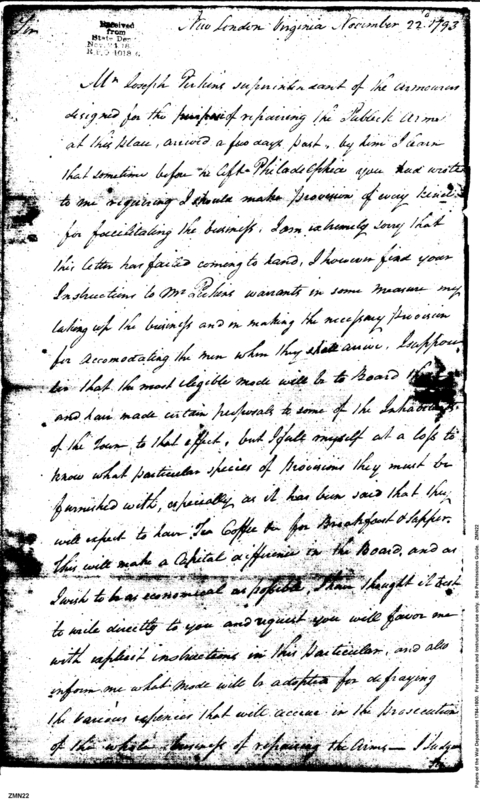 New London Virginia November 22d 1793
Sir
Received
from
State Dep
Mr Joseph Perkins superintendant of the armourers
designed for the purpose of repairing the Publick Arms
at this place, arrived a few days past, by him I learn
that sometime before he left Philadelphia you had wrote
to me requiring I should make provision of every kind
for facilitating the business. I am extremely sorry that
this letter has failed coming to hand, I however find your
Instructions to Mr Perkins warrants in some measure my
taking up the business and in making the necessary provision
for accomodating the men when they shall arrive. I suppose
Sir that the most elegible mode will be to Board them
and have made certain proposals to some of the Inhabitants
of the Town to that effect, but I feel myself at a loss to
know what particular species of Provisions they must be
furnished with, especially as it has been said that they
will expect to have Tea Coffee &c for Breakfast & supper.
This will make a Capital difference in the Board, and as
I wish to be as economical as possible I have thought it best
to write directly to you and request you will favor me
with explicit instructions in this particular, and also
inform me what mode will be adopted for defraying
the various expences that will accrue in the prosecution
of the whole business of repairing the Arms — I Judge
ZMN22
Papers of the War Department 1784-1800. For research and instructional use only. See Permissions Guide. ZMN22